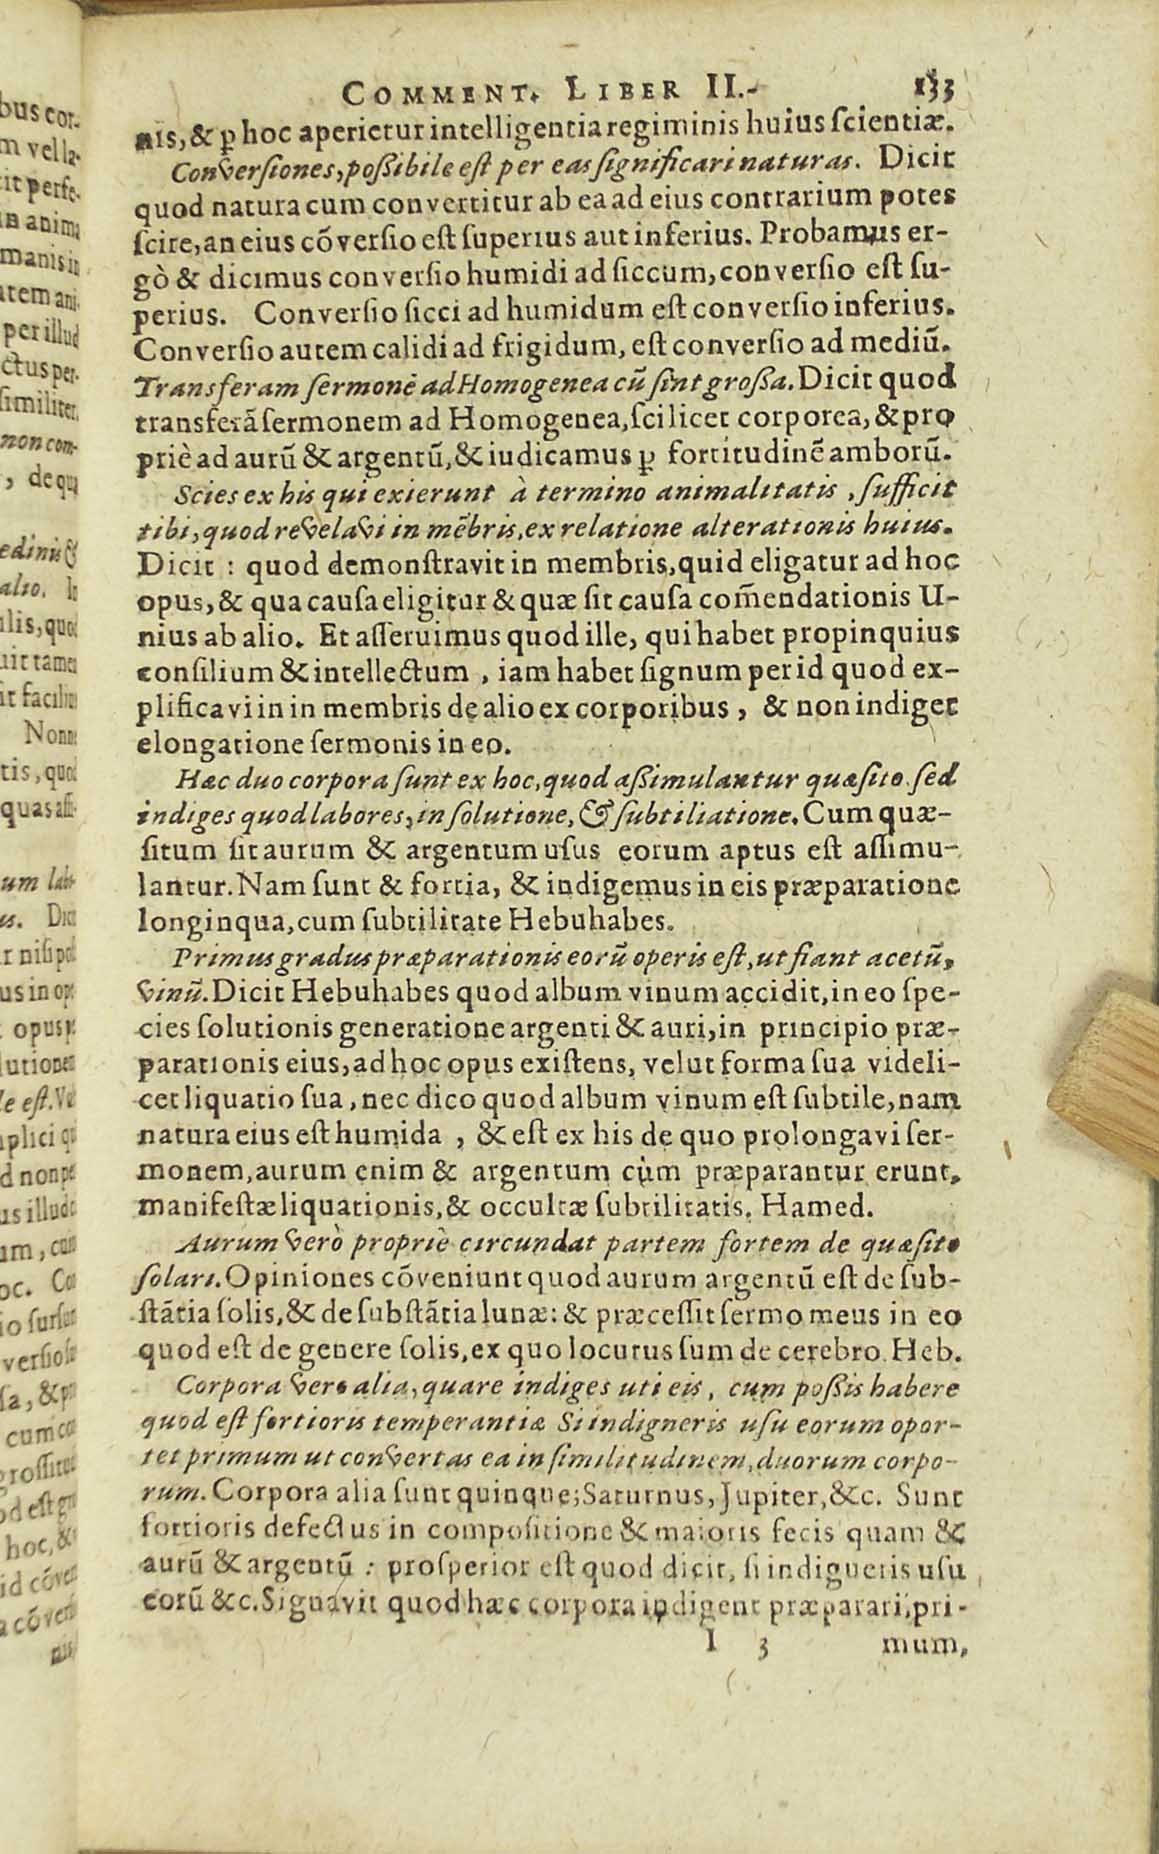 COMMENT. LIBER II. 133
nis, & ꝑ hoc aperietur intelligentia regiminis huius scientiæ.
Conversiones, possibile est per eas significari naturas. Dicit
quod natura cum convertitur ab ea ad eius contrarium potes
scire, an eius cōversio est superius aut inferius. Probamus er-
gò & dicimus conversio humidi ad siccum, conversio est su-
perius. Conversio sicci ad humidum est conversio inferius.
Conversio autem calidi ad frigidum, est conversio ad mediū.
Transferam sermonē ad Homogenea cū sint grossa. Dicit quod
transferā sermonem ad Homogenea, scilicet corporea, & pro
priè ad aurū & argentū, & iudicamus ꝑ fortitudinē amborū.
Scies ex his qui exierunt à termino animalitatis, sufficit
tibi, quod revelavi in mēbris, ex relatione alterationis huius.
Dicit: quod demonstravit in membris, quid eligatur ad hoc
opus, & qua causa eligitur & quæ sit causa com̄endationis U-
nius ab alio. Et asseruimus quod ille, qui habet propinquius
consilium & intellectum, iam habet signum per id quod ex-
plificavi in in membris de alio ex corporibus, & non indiget
elongatione sermonis in eo.
Hæc duo corpora sunt ex hoc, quod assimulantur quæsito. sed
indiges quod labores, in solutione, & subtiliatione. Cum quæ-
situm sit aurum & argentum usus eorum aptus est assimu-
lantur. Nam sunt & fortia, & indigemus in eis præparatione
longinqua, cum subtilitate Hebuhabes.
Primus gradus præparationis eorū operis est, ut fiant acetū,
vinū. Dicit Hebuhabes quod album vinum accidit, in eo spe-
cies solutionis generatione argenti & auri, in principio præ-
parationis eius, ad hoc opus existens, velut forma sua videli-
cet liquatio sua, nec dico quod album vinum est subtile, nam
natura eius est humida, & est ex his de quo prolongavi ser-
monem, aurum enim & argentum cùm præparantur erunt,
manifestæ liquationis, & occultæ subtilitatis. Hamed.
Aurum verò propriè circundat partem fortem de quæsito
solari. Opiniones cōveniunt quod aurum argentū est de sub-
stātia solis, & de substātia lunæ: & præcessit sermo meus in eo
quod est de genere solis, ex quo locutus sum de cerebro. Heb.
Corpora vero alia, quare indiges uti eis, cum possis habere
quod est fortioris temperantiæ Si indigneris usu eorum opor-
tet primum ut convertas ea in similitudinem, duorum corpo-
rum. Corpora alia sunt quinque; Saturnus, Jupiter, &c. Sunt
fortioris defectus in compositione & maioris fecis quam &
aurū & argentū: prosperior est quod dicit, si indigueris usu
eorū &c. Signavit quod hæc corpora indigent præparari, pri-
I 3 mum,